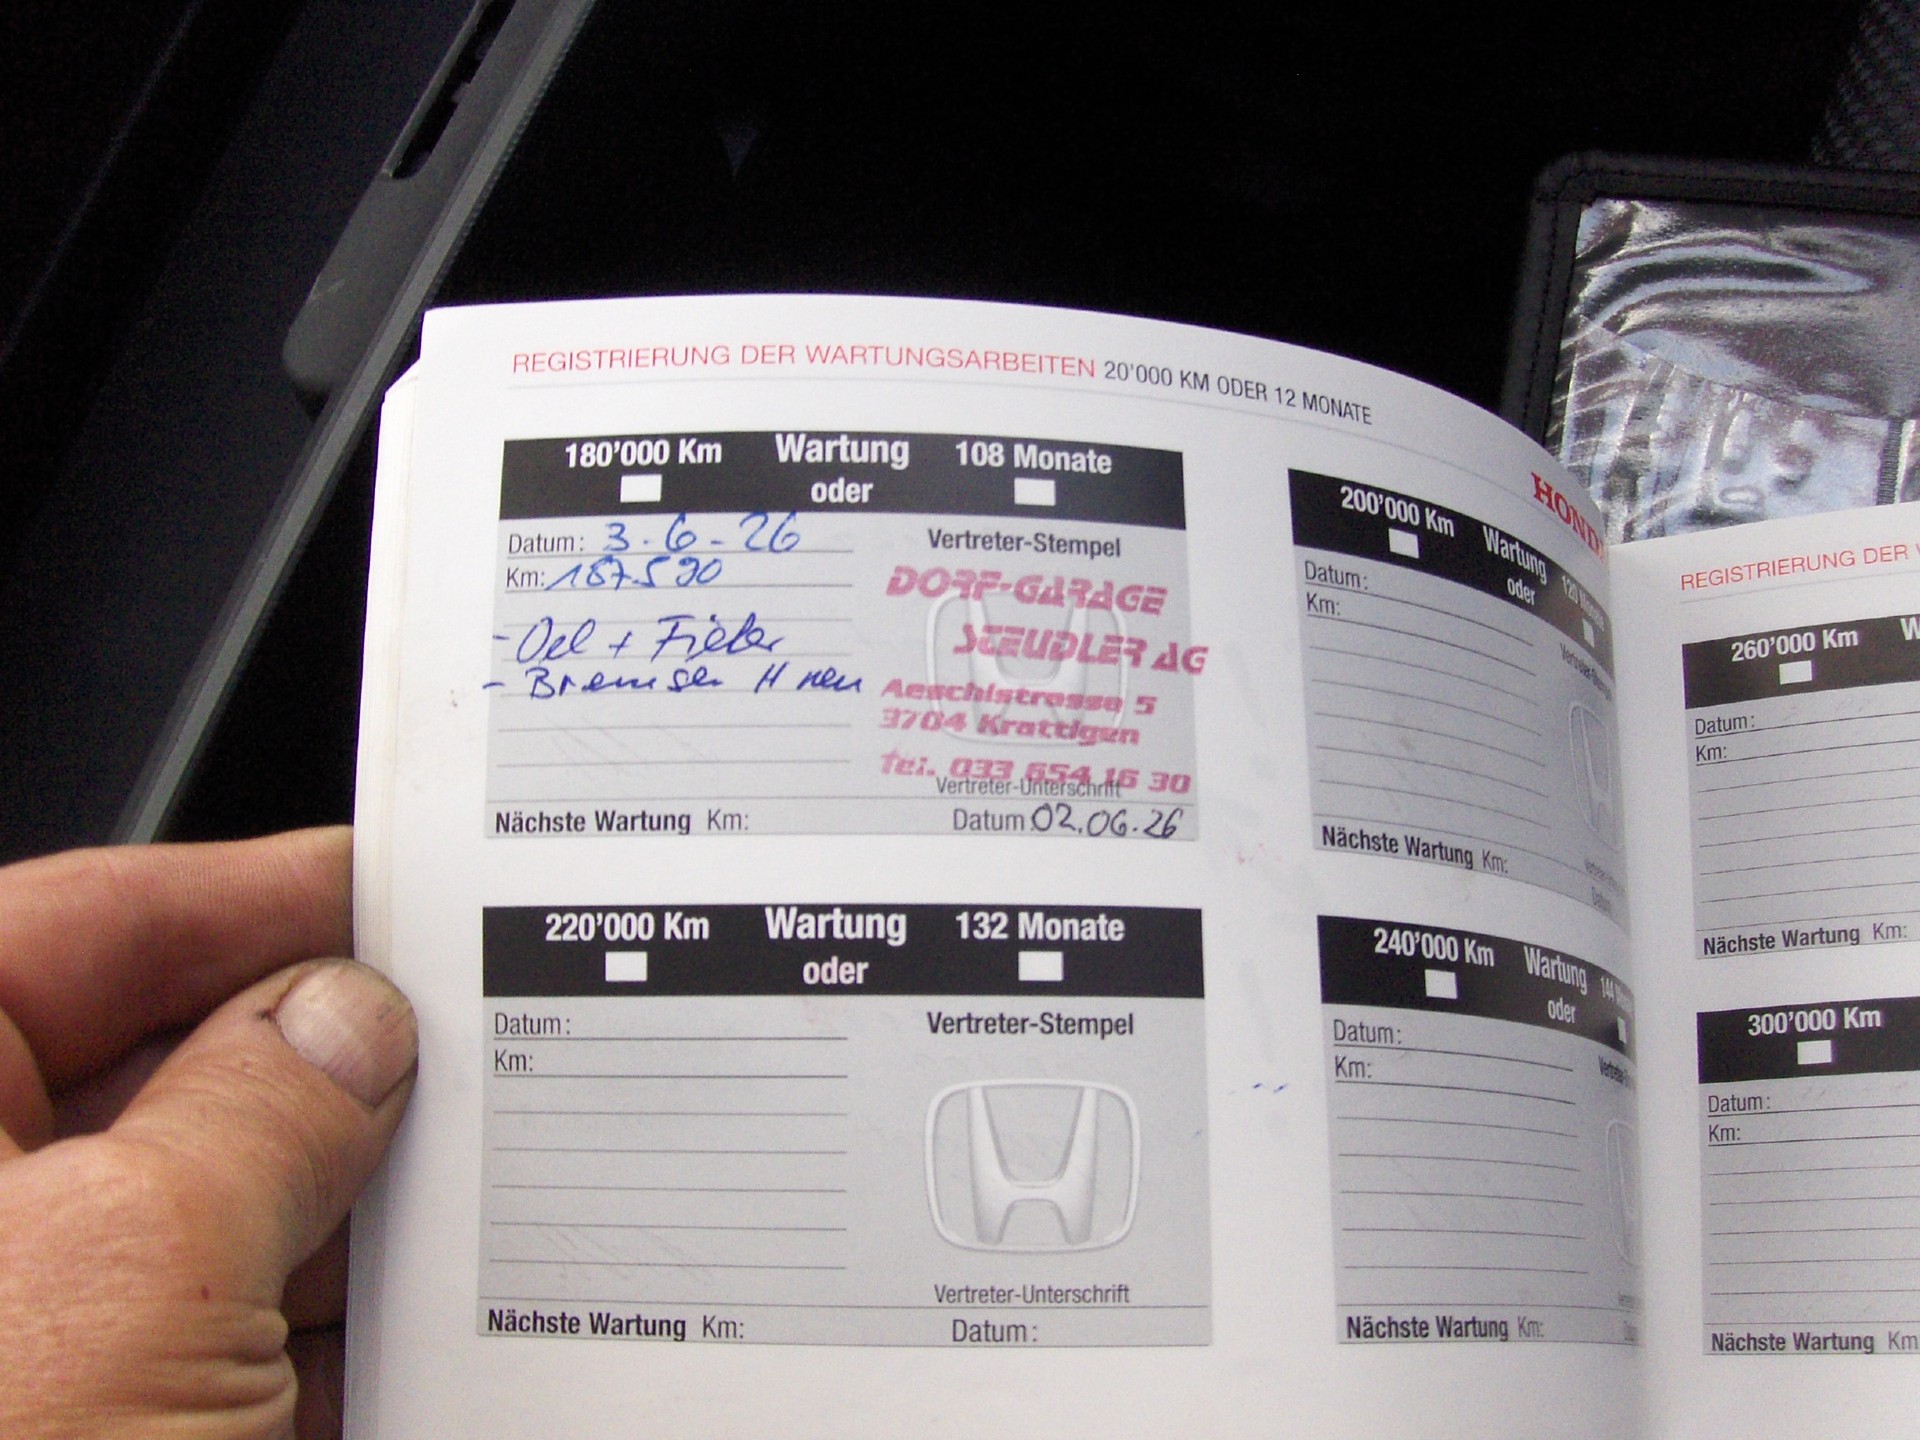 REGISTRIERUNG DER WARTUNGSARBEITEN 20'000 KM ODER 12 MONATE
HONDA
180'000 Km Wartung 108 Monate
oder
Datum: 3.6-26
Km: 187.590
- Oel + Filter
- Bremsen H neu
Vertreter-Stempel
DORF-GARAGE
STEUDLER AG
Aeschistrasse 5
3704 Krattigen
Tel. 033 654 16 30
Vertreter-Unterschrift
Nächste Wartung Km: Datum: 02.06.26
200'000 Km Wartung 120 Monate
oder
Datum:
Km:
Nächste Wartung Km:
220'000 Km Wartung 132 Monate
oder
Datum:
Km:
Vertreter-Stempel
Vertreter-Unterschrift
Nächste Wartung Km: Datum:
240'000 Km Wartung 144
oder
Datum:
Km:
Nächste Wartung Km:
REGISTRIERUNG DER
260'000 Km
Datum:
Km:
Nächste Wartung Km:
300'000 Km
Datum:
Km:
Nächste Wartung Km